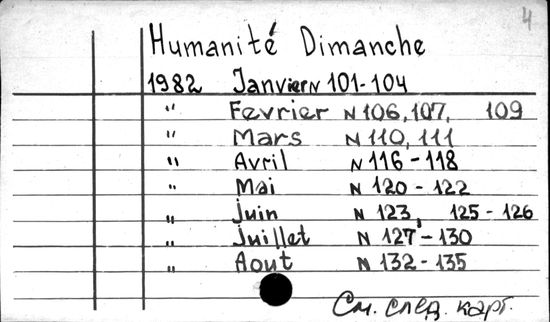 4
Humanité Dimanche
1982 Janvier N 101-104
" Fevrier N 106, 107, 109
" Mars N 110, 111
" Avril N 116-118
" Mai N 120-122
" juin N 123, 125-126
" Juillet N 127-130
" Aout N 132-135
См. след. карт.